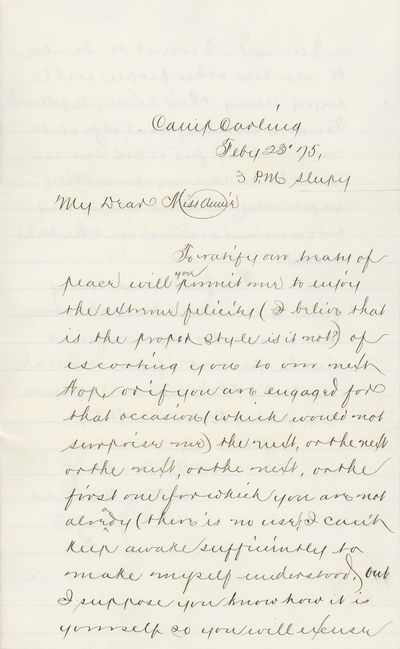 Camp Carling
Feby 23d '75,
3 P.M. sleepy
My Dear Miss Annie
To ratify our treaty of
peace will you permit me to enjoy
the extreme felicity (I belive that
is the proper style is it not?) of
escorting you to our next
Hop, or if you are engaged for
that occasion (which would not
surprise me) the next, or the next
or the next, or the next, or the
first one for which you are not
already (there is no use, I can't
keep awake sufficiently to
make myself understood), but
I suppose you know how it is
yourself so you will excuse